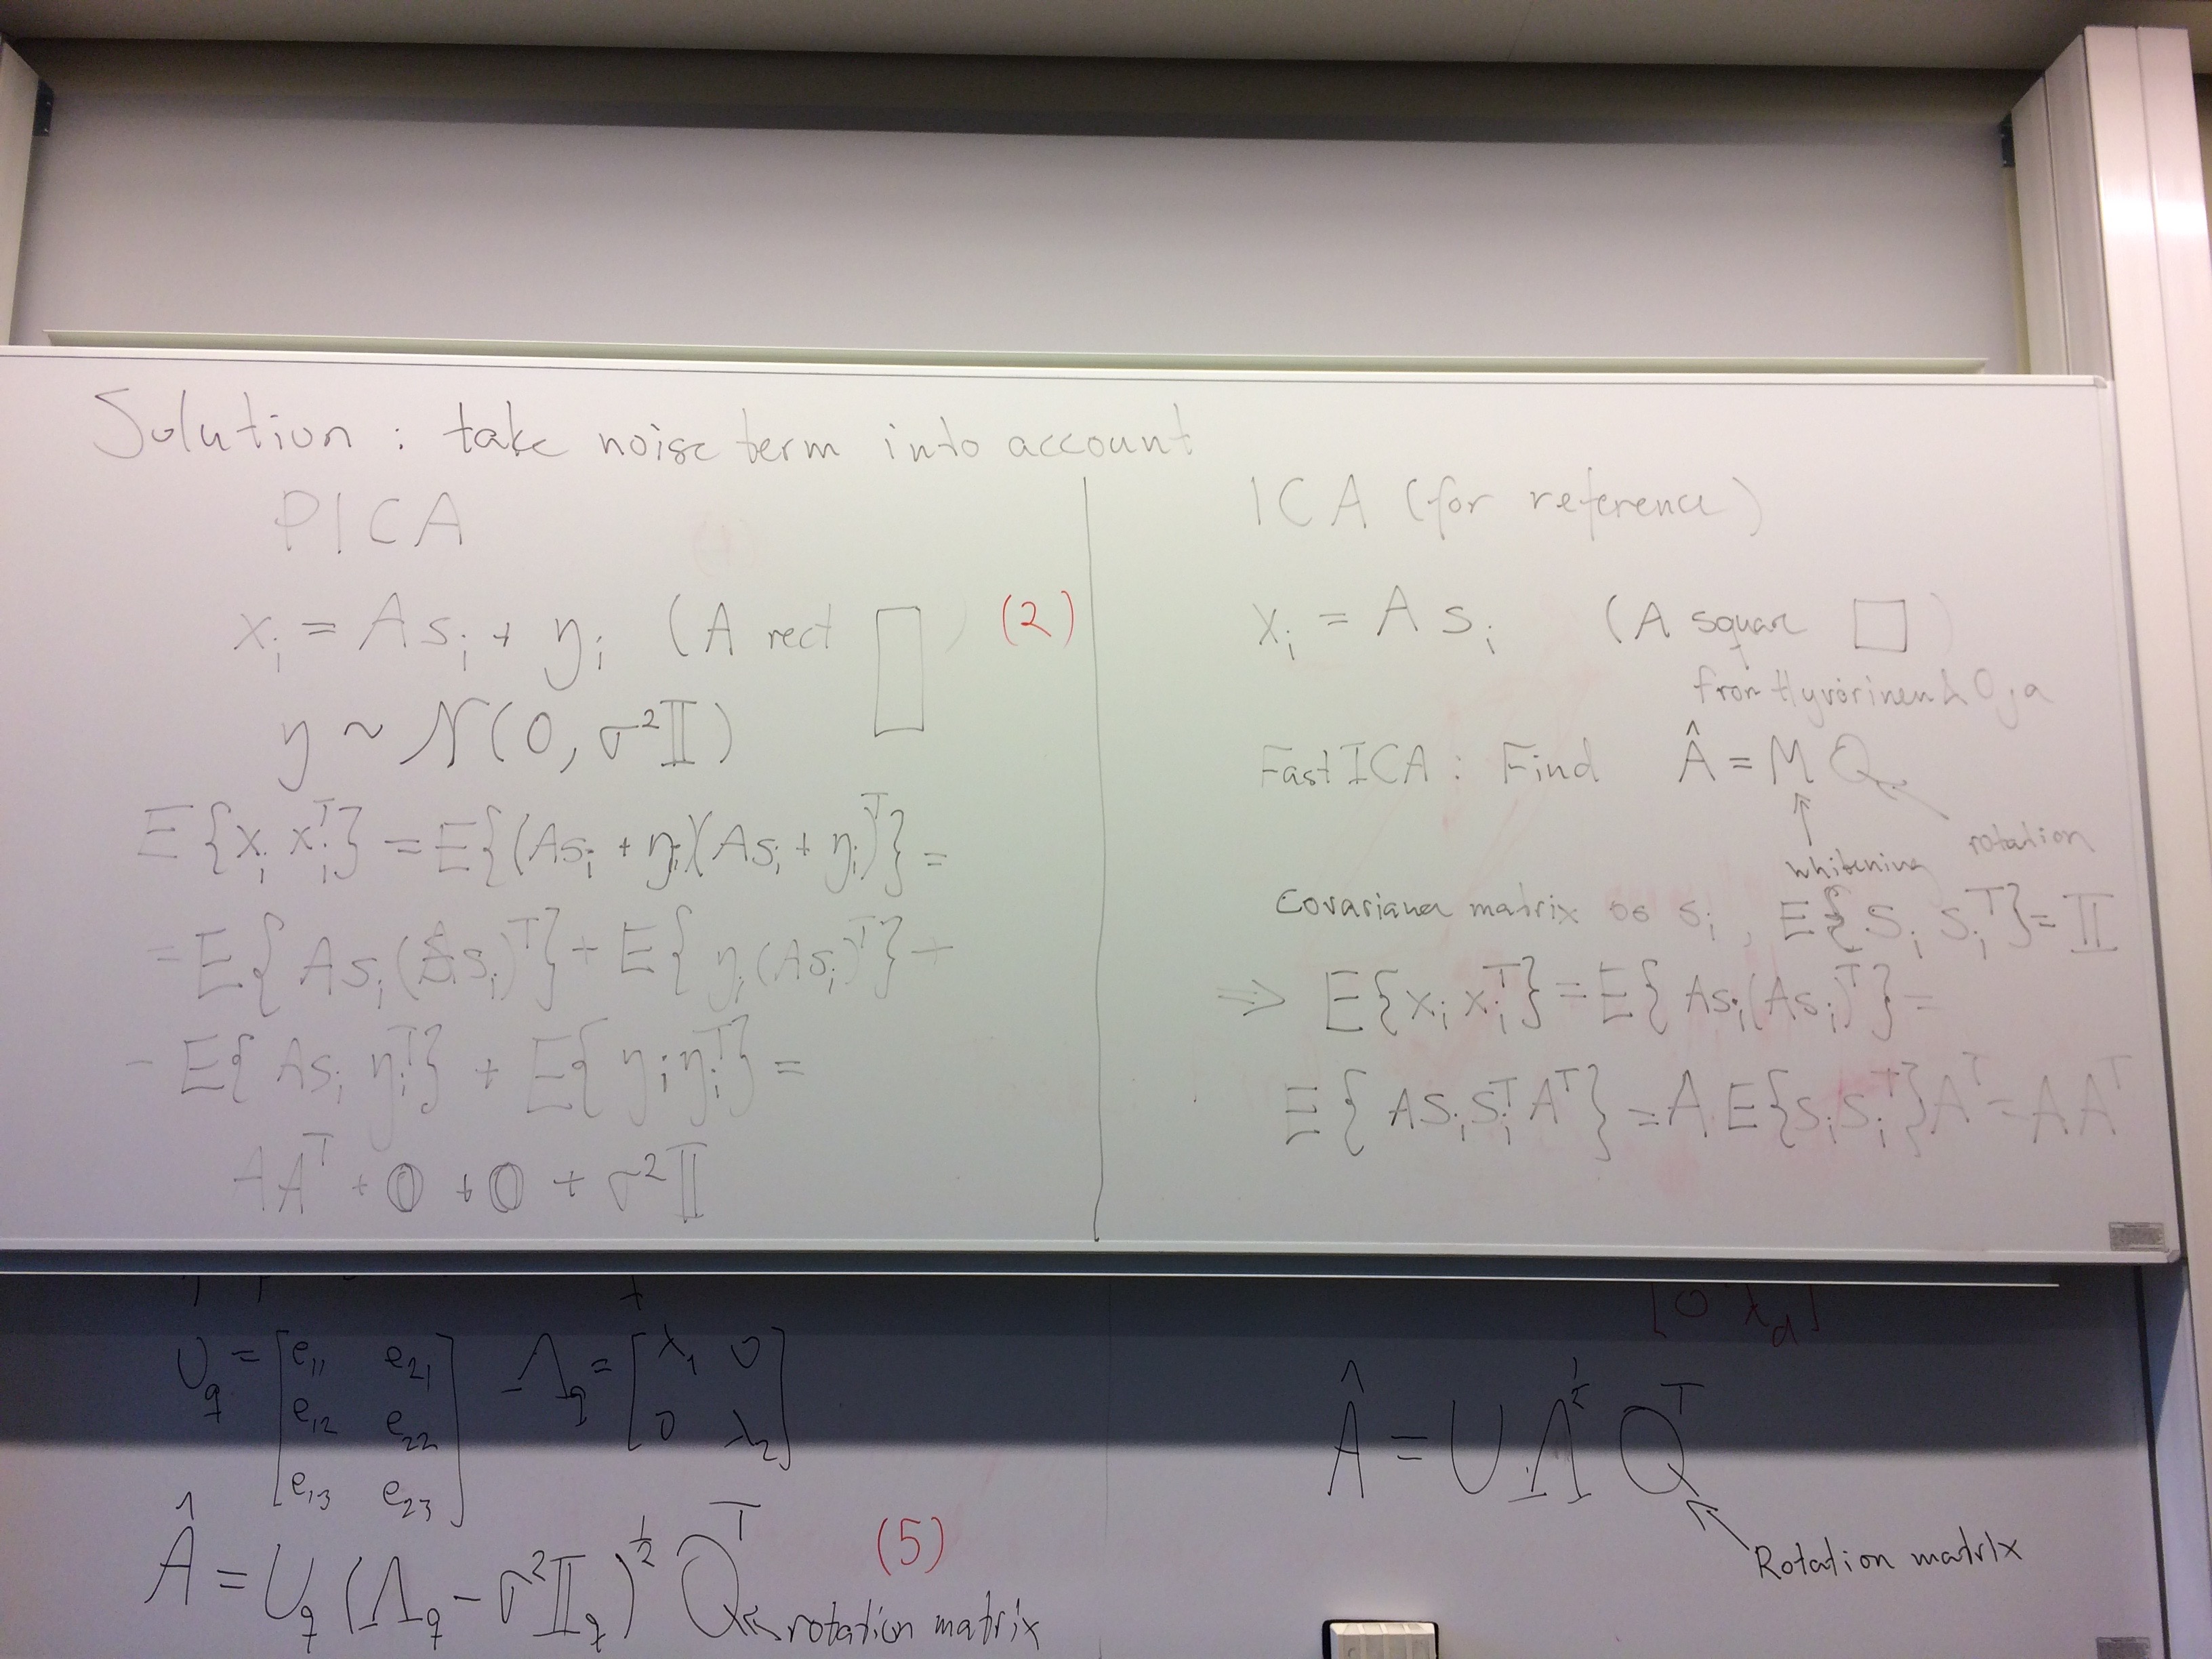 Solution : take noise term into account
PICA
xᵢ = A sᵢ + ηᵢ (A rect ▯) (2)
η ~ N(0, σ²𝕀)
E{xᵢ xᵢᵀ} = E{(Asᵢ + ηᵢ)(Asᵢ + ηᵢ)ᵀ} =
= E{Asᵢ(Asᵢ)ᵀ} + E{ηᵢ(Asᵢ)ᵀ} +
- E{Asᵢ ηᵢᵀ} + E{ηᵢ ηᵢᵀ} =
AAᵀ + 𝕆 + 𝕆 + σ²𝕀
ICA (for reference)
xᵢ = A sᵢ (A square □)
from Hyvärinen & Oja
FastICA : Find Â = M Q
whitening rotation
Covariance matrix os sᵢ, E{sᵢ sᵢᵀ} = 𝕀
⇒ E{xᵢ xᵢᵀ} = E{Asᵢ(Asᵢ)ᵀ} =
E{Asᵢsᵢᵀ Aᵀ} = A E{sᵢsᵢᵀ}Aᵀ = AAᵀ
U_q = [e₁₁ e₂₁ Λ_q = [λ₁ 0
e₁₂ e₂₂ 0 λ₂]
e₁₃ e₂₃]
Â = U_q (Λ_q - σ²𝕀_q)^½ Qᵀ (5)
rotation matrix
[0 λ_d]
Â = U Λ^½ Qᵀ
Rotation matrix